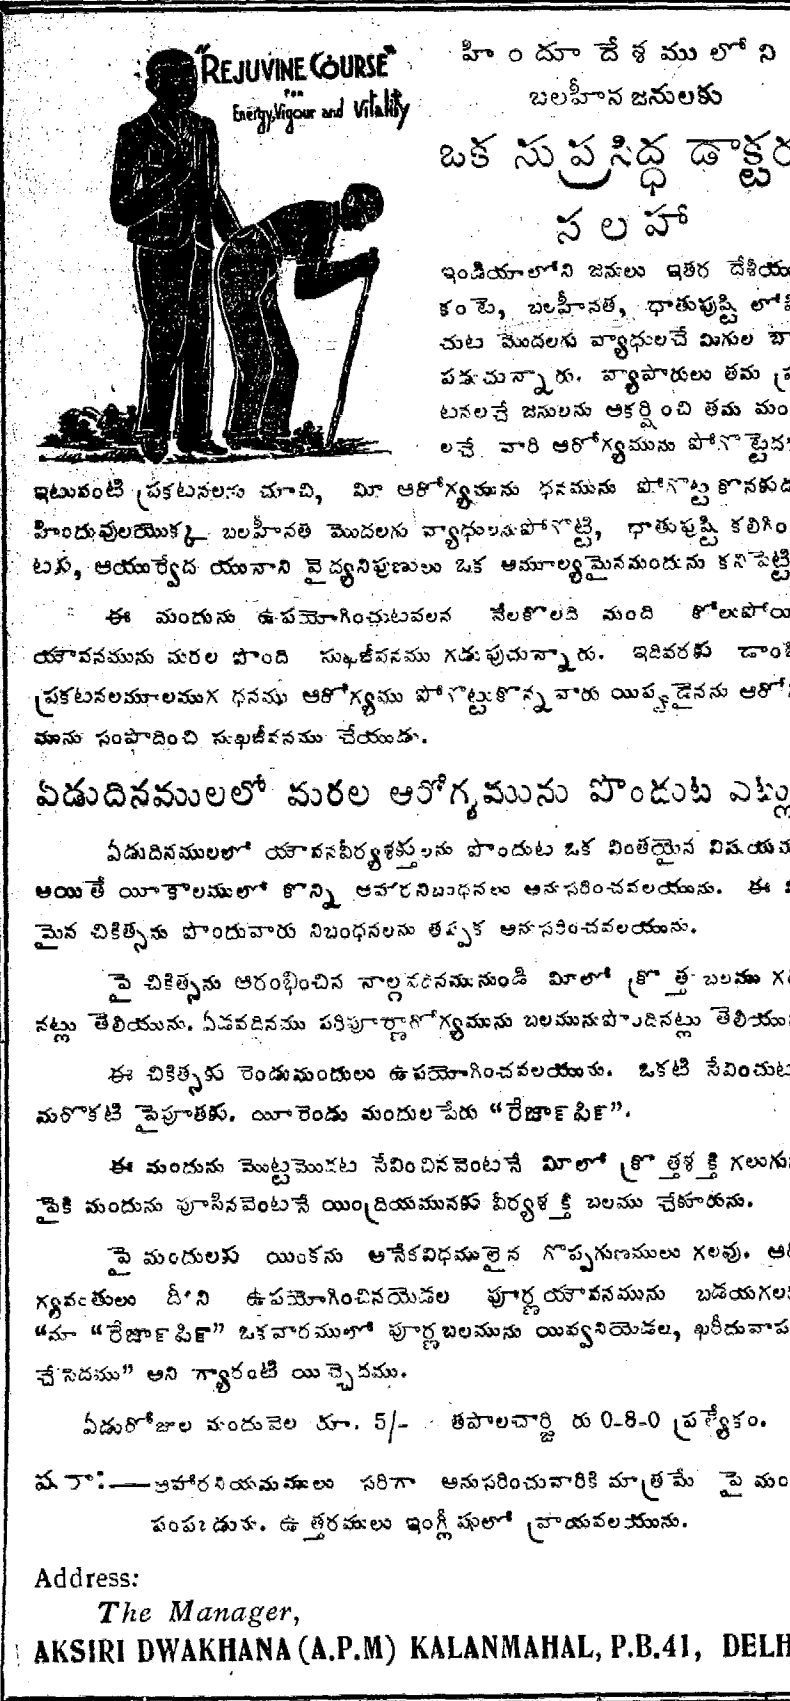 "REJUVINE COURSE"
FOR
Energy, Vigour and Vitality
హిందూ దేశములోని
బలహీన జనులకు
ఒక సుప్రసిద్ధ డాక్టరు
సలహా
ఇండియాలోని జనులు ఇతర దేశీయు
కంటె, బలహీనత, ధాతుపుష్టి లోపి
చుట మొదలగు వ్యాధులచే మిగుల బా
పడుచున్నారు. వ్యాపారులు తమ ప్ర
టనలచే జనులను ఆకర్షించి తమ మం
లచే వారి ఆరోగ్యమును పోగొట్టెద
ఇటువంటి ప్రకటనలను చూచి, మీ ఆరోగ్యమును ధనమును పోగొట్టకొనకుడ
హిందువులయొక్క బలహీనతి మొదలగు వ్యాధులనుపోగొట్టి, ధాతుపుష్టి కలిగిం
టకు, ఆయుర్వేద యునాని వైద్యనిపుణులు ఒక అమూల్యమైనమందును కనిపెట్టి
ఈ మందును ఉపయోగించుటవలన వేలకొలది మంది కోలుపోయి
యౌవనమును మరల పొంది సుఖజీవనము గడుపుచున్నారు. ఇదివరకు డాంబి
ప్రకటనలమూలముగ ధనము ఆరోగ్యము పోగొట్టుకొన్న వారు యిప్పుడైనను ఆరో
మును సంపాదించి సుఖజీవనము చేయుడు.
ఏడుదినములలో మరల ఆరోగ్యమును పొందుట ఎట్లు
ఏడుదినములలో యౌవనవీర్యశక్తులను పొందుట ఒక వింతయైన విషయమ
అయితే యీకాలములో కొన్ని ఆహారనిబంధనలు అనుసరించవలయును. ఈ
మైన చికిత్సను పొందువారు నిబంధనలను తప్పక అనుసరించవలయును.
పై చికిత్సను ఆరంభించిన నాల్గవదినమునుండి మీలో క్రొత్త బలము గ
నట్లు తెలియును. ఏడవదినము పరిపూర్ణారోగ్యమును బలమునుపొందినట్లు తెలియు
ఈ చికిత్సకు రెండుమందులు ఉపయోగించవలయును. ఒకటి సేవించుట
మరొకటి పైపూతకు. యీరెండు మందులపేరు "రేజార్‌పిర్".
ఈ మందును మొట్టమొదట సేవించినవెంటనే మీలో క్రొత్తశక్తి గలుగు
పైకి మందును పూసినవెంటనే యింద్రియమునకు వీర్యశక్తి బలము చేకూరును.
పై మందులకు యింకను అనేకవిధములైన గొప్పగుణములు గలవు. ఆరో
గ్యవంతులు దీని ఉపయోగించినయెడల పూర్ణయౌవనమును బడయగల
"మా "రేజార్‌పిర్" ఒకవారములో పూర్ణబలమును యివ్వనియెడల, ఖరీదువాప
చేసెదము" అని గ్యారంటి యిచ్చెదము.
ఏడురోజుల మందువెల రూ. 5/- తపాలచార్జి రు 0-8-0 ప్రత్యేకం.
ష రా:—ఆహారనియమములు సరిగా అనుసరించువారికి మాత్రమే పై మం
పంపబడును. ఉత్తరములు ఇంగ్లీషులో వ్రాయవలయును.
Address:
The Manager,
AKSIRI DWAKHANA (A.P.M) KALANMAHAL, P.B.41, DELH